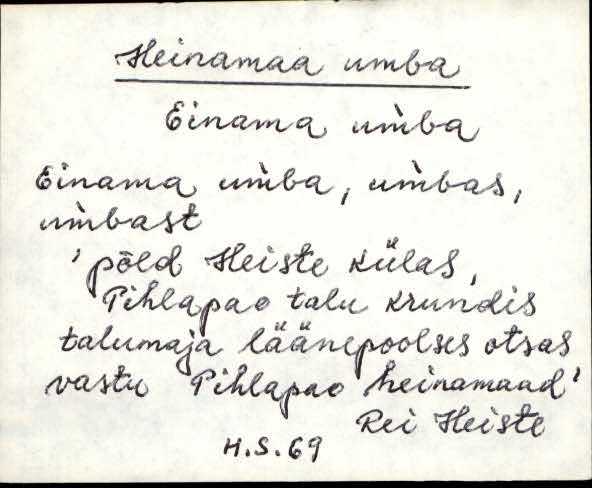 Heinamaa umba
Einama um̀ba
Einama um̀ba, um̀bas,
um̀bast
'põld Heiste külas,
Pihlapao talu krundis
talumaja läänepoolses otsas
vastu Pihlapao heinamaad'
Rei Heiste
H.S.69